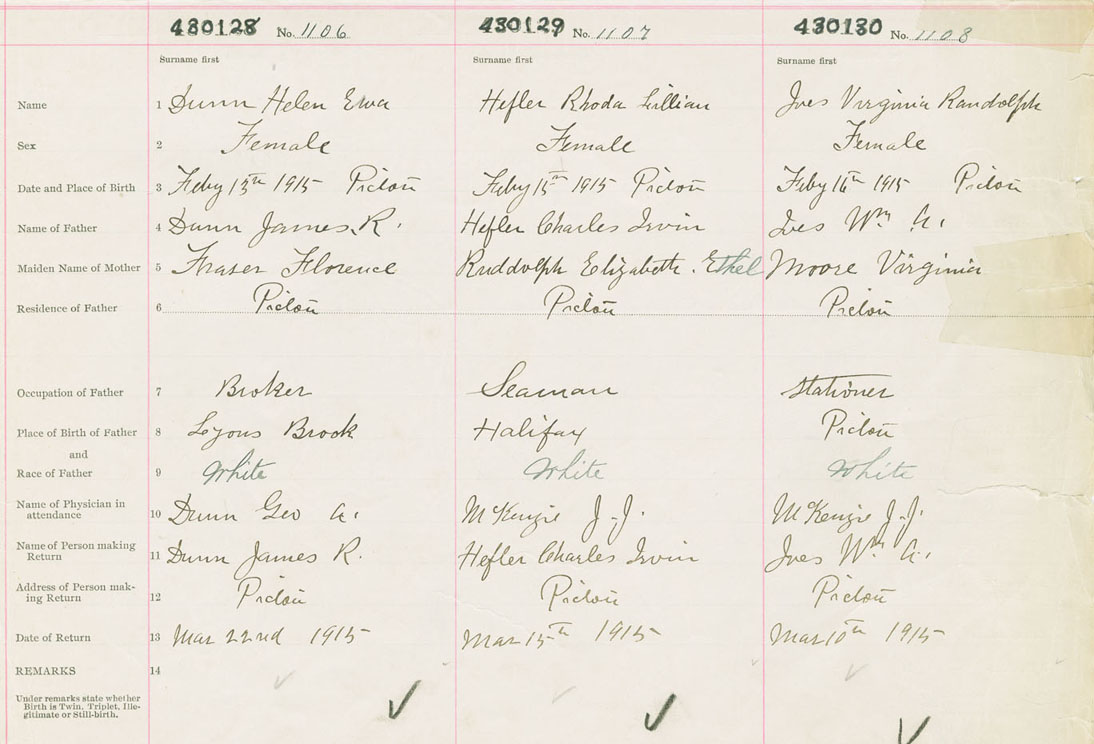 430128 No. 1106 430129 No. 1107 430130 No. 1108
Surname first Surname first Surname first
Name 1 Dunn Helen Ewa Hefler Rhoda Lillian Ives Virginia Randolph
Sex 2 Female Female Female
Date and Place of Birth 3 Feby 13th 1915 Pictou Feby 15th 1915 Pictou Feby 16th 1915 Pictou
Name of Father 4 Dunn James R. Hefler Charles Irvin Ives Wm A.
Maiden Name of Mother 5 Fraser Florence Ruddolph Elizabeth. Ethel Moore Virginia
Residence of Father 6 Pictou Pictou Pictou
Occupation of Father 7 Broker Seaman Stationer
Place of Birth of Father 8 Lyons Brook Halifax Pictou
and
Race of Father 9 White White White
Name of Physician in
attendance 10 Dunn Geo A. McKenzie J.J. McKenzie J.J.
Name of Person making
Return 11 Dunn James R. Hefler Charles Irvin Ives Wm A.
Address of Person mak-
ing Return 12 Pictou Pictou Pictou
Date of Return 13 Mar 22nd 1915 Mar 15th 1915 Mar 10th 1915
REMARKS 14
Under remarks state whether
Birth is Twin, Triplet, Ille-
gitimate or Still-birth.